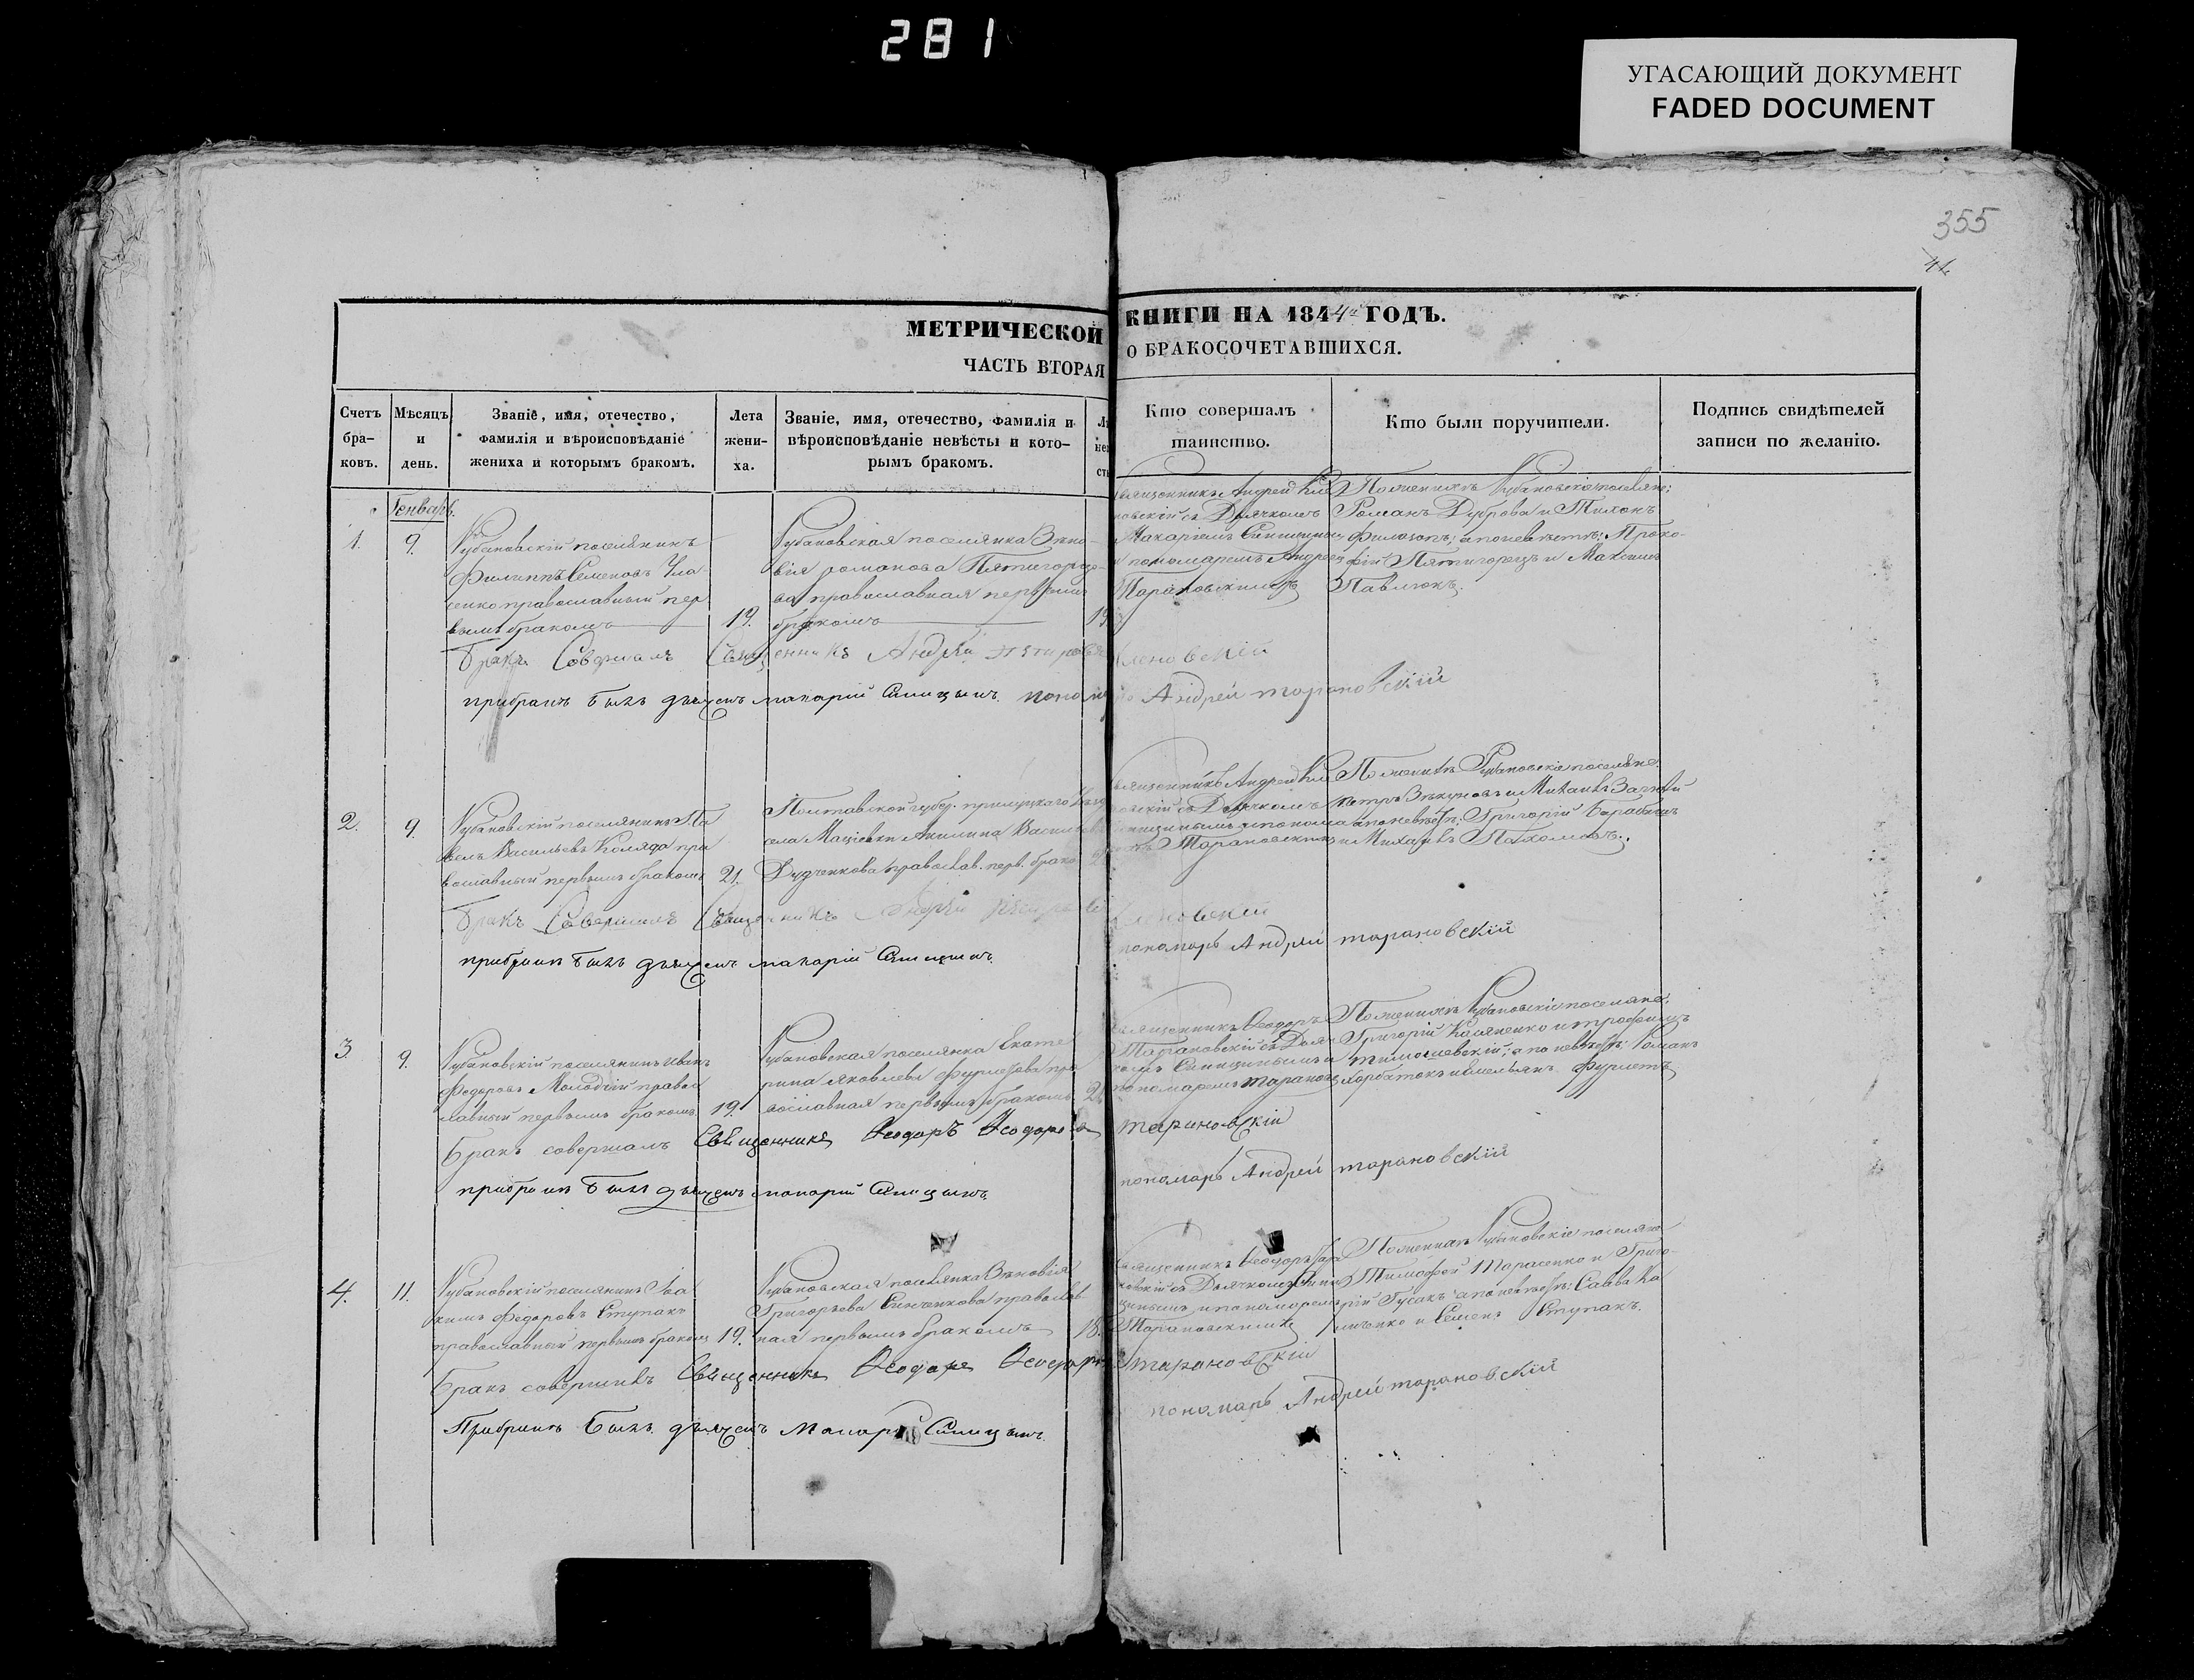 281
УГАСАЮЩИЙ ДОКУМЕНТ
FADED DOCUMENT
355
41
МЕТРИЧЕСКОЙ КНИГИ НА 1844й ГОДЪ.
ЧАСТЬ ВТОРАЯ О БРАКОСОЧЕТАВШИХСЯ.
Счетъ бра-ковъ.
Мѣсяцъ и день.
Званіе, имя, отечество, фамилія и вѣроисповѣданіе жениха и которымъ бракомъ.
Лета жени-ха.
Званіе, имя, отечество, фамилія и вѣроисповѣданіе невѣсты и кото-рымъ бракомъ.
Кто совершалъ таинство.
Кто были поручители.
Подпись свидѣтелей записи по желанію.
Генварь.
1.
9.
Рубановскій поселянинъ
Филиппъ Семеновъ
православный пер
вымъ бракомъ
19.
Рубановская поселянка
вія романова Пятигорцо-
ва православная первымъ
бракомъ
19
Священникъ Андрей
новскій съ Дьячкомъ
Макаріемъ Синицинымъ
и пономаремъ Андреемъ
Тарановскимъ
По женихѣ Рубановскіе поселяне:
Романъ Дуброва и Тихонъ
а по невѣстѣ: Проко-
фій Пятигорецъ и Максимъ
Павлюкъ.
Бракъ Совершалъ Священникъ Андрей Петровъ
при бракѣ былъ дьячокъ макарій Синицынъ. пономарь Андрей тарановскій
2.
9.
Рубановскій поселянинъ Па
велъ Васильевъ Коляда пра
вославный первымъ бракомъ
21.
Полтавской губер. прилуцкаго уезда
села Мацѣевки Акилина Васильева
Дудченкова православ. перв. брако
Священникъ Андрей
новскій съ Дьячкомъ
Синицинымъ и понома
ремъ Тарановскимъ
По женихѣ Рубановскіе поселяне:
Петръ и Михаилъ
а по невѣстѣ: Григорій Барабашъ
и Михаилъ Пахомовъ.
Бракъ Совершалъ Священникъ Андрей Петровъ
при бракѣ былъ дьячокъ макарій Синицынъ.
пономарь Андрей тарановскій
3.
9.
Рубановскій поселянинъ Иванъ
Федоровъ Молодчій правос
лавный первымъ бракомъ
19.
Рубановская поселянка Екате
рина Яковлева Фурлетова пра
вославная первымъ бракомъ
Священникъ Ѳеодоръ
Тарановскій съ Дьяч
комъ Синицинымъ и
пономаремъ Таранов
По женихѣ Рубановскіе поселяне:
Григорій и трофимъ
тимошевскій; а по невѣстѣ: Романъ
Горбатокъ и емельянъ Фурлетъ
Бракъ совершалъ Священникъ Ѳеодоръ Ѳеодоровъ Тарановскій
при бракѣ былъ дьячокъ макарій Синицынъ.
пономарь Андрей тарановскій
4.
11.
Рубановскій поселянинъ Іоа
кимъ Федоровъ Ступакъ
православный первымъ бракомъ
19.
Рубановская поселянка
Григорьева Синченкова православ
ная первымъ бракомъ
18.
Священникъ Ѳеодоръ Тара
новскій съ Дьячкомъ Сини
цинымъ и пономаремъ
Тарановскимъ
По женихѣ Рубановскіе поселяне
Тимофей Тарасенко и Григо-
рій Гусакъ а по невѣстѣ: Савва
и Семенъ Ступакъ.
Бракъ совершилъ Священникъ Ѳеодоръ Ѳеодоровъ Тарановскій
При бракѣ былъ дьячокъ макарій Синицынъ.
пономарь Андрей тарановскій